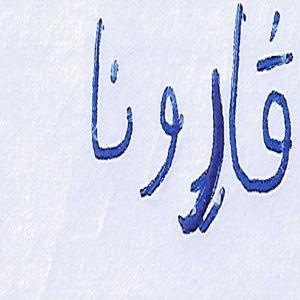 قَارونا